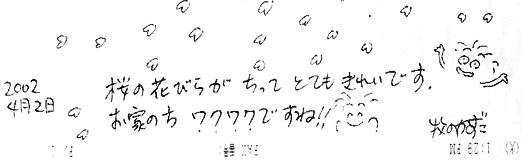 2002
4月2日
桜の花びらが ちって とても きれいです.
お家のち ワクワクですね!!
牧のかずだ